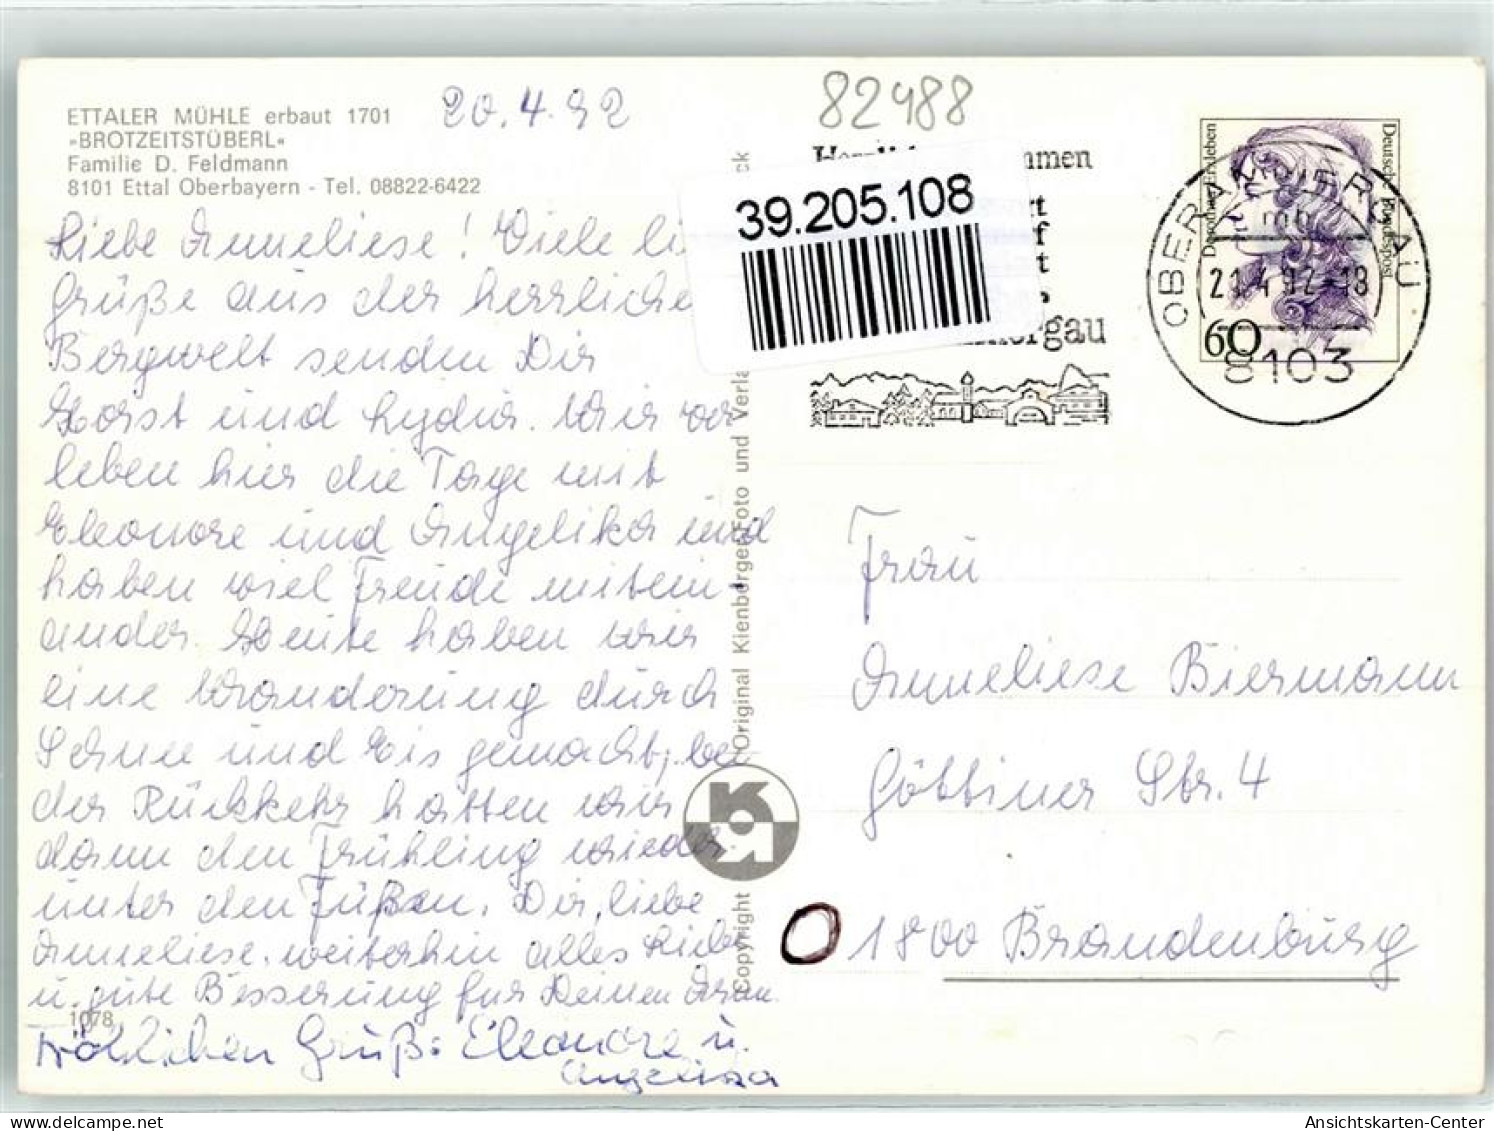 ETTALER MÜHLE erbaut 1701
»BROTZEITSTÜBERL«
Familie D. Feldmann
8101 Ettal Oberbayern - Tel. 08822-6422
20.4.92
Liebe Anneliese! Viele li
Grüße aus der herrliche
Bergwelt senden Dir
Horst und Lydia. Wir ver
leben hier die Tage mit
Eleonore und Angelika und
haben viel Freude mitein-
ander. Heute haben wir
eine Wanderung durch
Schnee und Eis gemacht, bei
der Rückkehr hatten wir
dann den Frühling wieder
unter den Füßen. Dir, liebe
Anneliese, weiterhin alles Liebe
u. gute Besserung für Deinen Arm.
1078
Fröhlichen Gruß: Eleonore u.
Angelika
Copyright
Original Kienberger Foto und Verla
ck
82488
mmen
39.205.108
rt
f
t
ergau
Deutsche Bundespost
Dorothea Erxleben
60
OBERAMMERGAU
mb
21.4.92-18
8103
Frau
Anneliese Biermann
Göttiner Str. 4
O 1800 Brandenburg
Ansichtskarten-Center